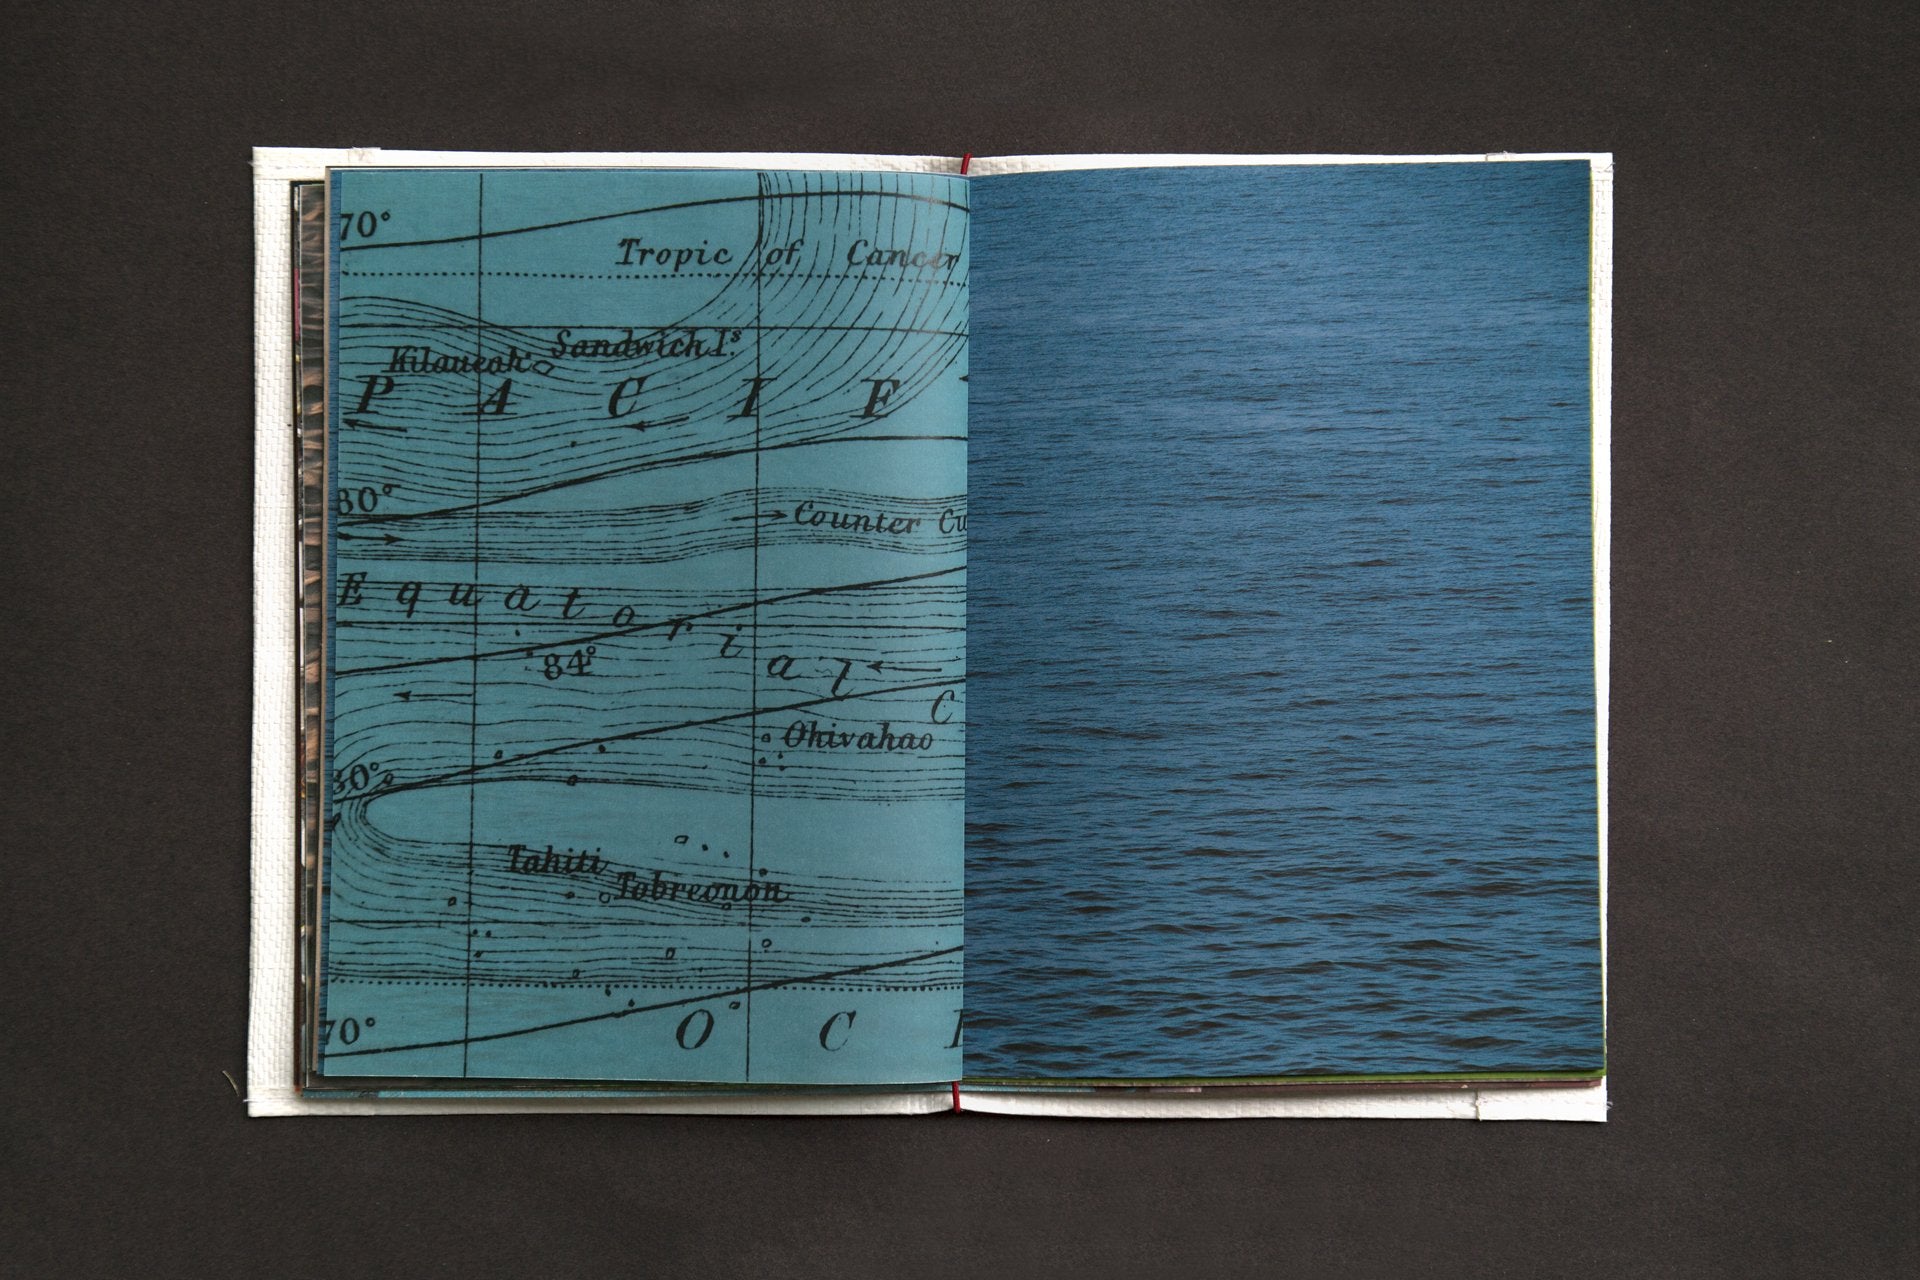 70°
Tropic of Cancer
Sandwich Iˢ.
Kilaueah
P A C I F
80°
Counter Cu
Equatorial
84°
C
Ohivahao
80°
Tahiti
Tobreonon
70°
O C